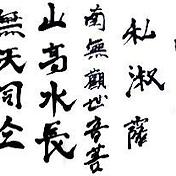 私淑薩
南無觀世音菩
山高水長
無天同